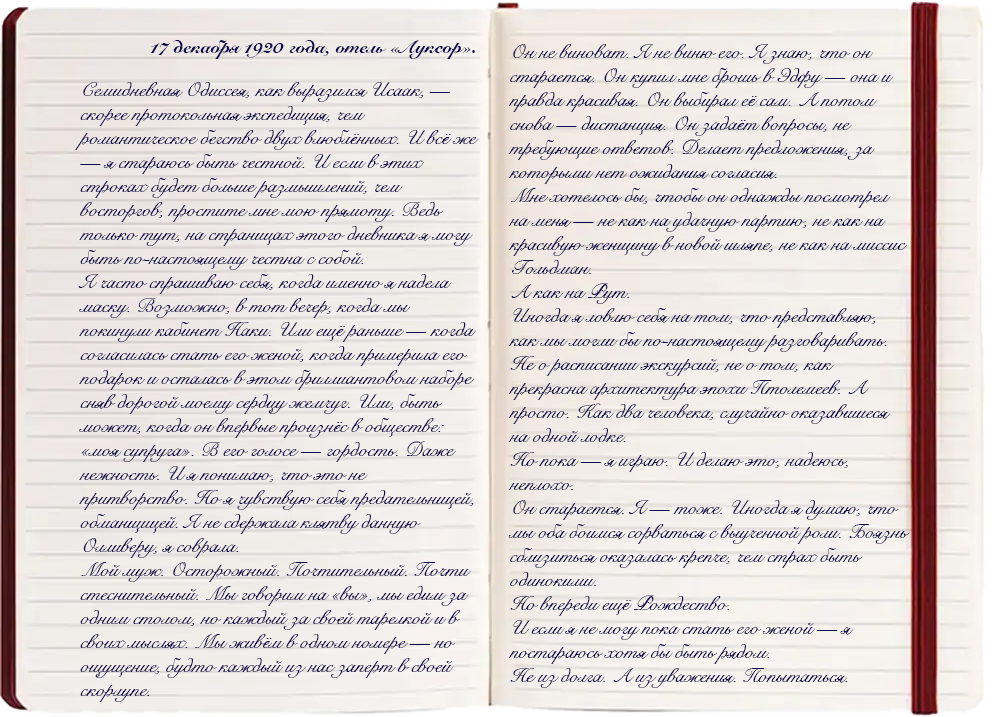 17 декабря 1920 года, отель «Луксор».
Семидневная Одиссея, как выразился Исаак, —
скорее протокольная экспедиция, чем
романтическое бегство двух влюблённых. И всё же
— я стараюсь быть честной. И если в этих
строках будет больше размышлений, чем
восторгов, простите мне мою прямоту. Ведь
только тут, на страницах этого дневника я могу
быть по-настоящему честна с собой.
Я часто спрашиваю себя, когда именно я надела
маску. Возможно, в тот вечер, когда мы
покинули кабинет Наки. Или ещё раньше — когда
согласилась стать его женой, когда примерила его
подарок и осталась в этом бриллиантовом наборе
сняв дорогой моему сердцу жемчуг. Или, быть
может, когда он впервые произнёс в обществе:
«моя супруга». В его голосе — гордость. Даже
нежность. И я понимаю, что это не
притворство. Но я чувствую себя предательницей,
обманщицей. Я не сдержала клятву данную
Олливеру, я соврала.
Мой муж. Осторожный. Почтительный. Почти
стеснительный. Мы говорим на «вы», мы едим за
одним столом, но каждый за своей тарелкой и в
своих мыслях. Мы живём в одном номере — но
ощущение, будто каждый из нас заперт в своей
скорлупе.
Он не виноват. Я не виню его. Я знаю, что он
старается. Он купил мне брошь в Эдфу — она и
правда красивая. Он выбирал её сам. А потом
снова — дистанция. Он задаёт вопросы, не
требующие ответов. Делает предложения, за
которыми нет ожидания согласия.
Мне хотелось бы, чтобы он однажды посмотрел
на меня — не как на удачную партию, не как на
красивую женщину в новой шляпе, не как на миссис
Гольдман.
А как на Рут.
Иногда я ловлю себя на том, что представляю,
как мы могли бы по-настоящему разговаривать.
Не о расписании экскурсий, не о том, как
прекрасна архитектура эпохи Птолемеев. А
просто. Как два человека, случайно оказавшиеся
на одной лодке.
Но пока — я играю. И делаю это, надеюсь,
неплохо.
Он старается. Я — тоже. Иногда я думаю, что
мы оба боимся сорваться с выученной роли. Боязнь
сблизиться оказалась крепче, чем страх быть
одинокими.
Но впереди ещё Рождество.
И если я не могу пока стать его женой — я
постараюсь хотя бы быть рядом.
Не из долга. А из уважения. Попытаться.